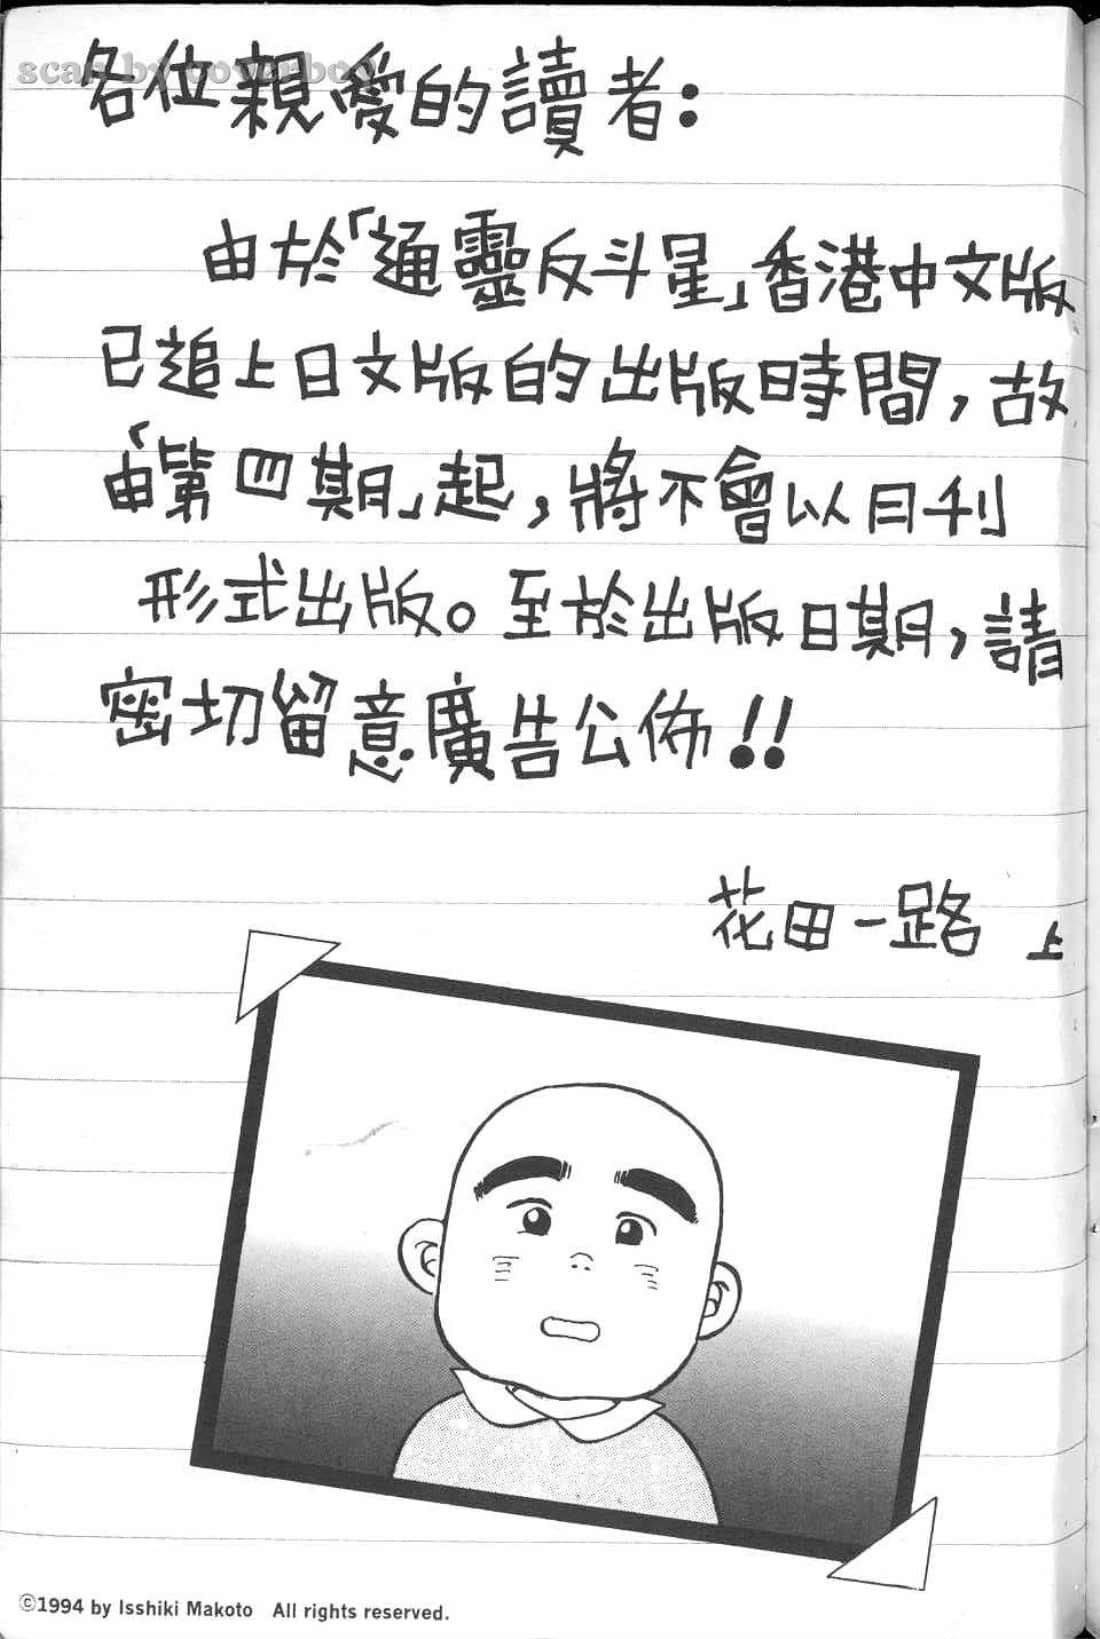 scan by coverboy
各位親愛的讀者：
由於「通靈反斗星」香港中文版
已追上日文版的出版時間，故
由「第四期」起，將不會以月刊
形式出版。至於出版日期，請
密切留意廣告公佈！！
花田一路 上
©1994 by Isshiki Makoto All rights reserved.